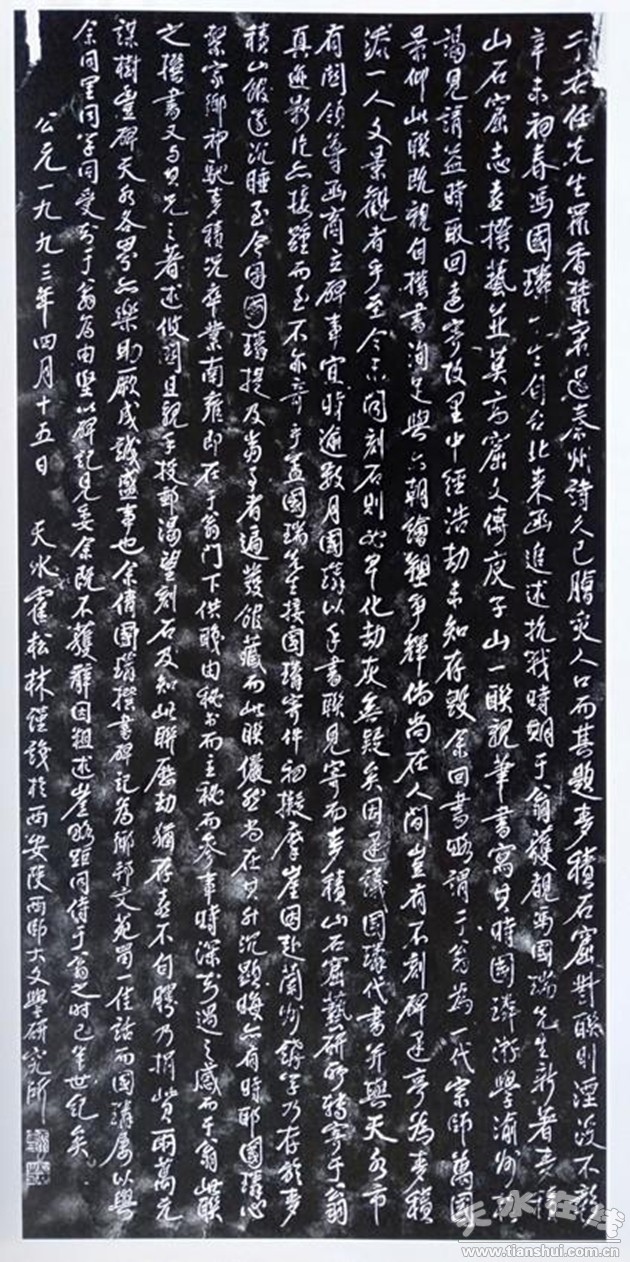 于右任先生過秦州詩久已膾炙人口而其題麥積石窟對聯則湮沒不彰
辛未初春馮國璘先生自台北來函追述抗戰時期于翁獲觀馮國瑞先生新著麥積
山石窟志喜撰藝並莫高窟文傳庾子山一聯親筆書寫其時國璘游學渝州
謁見請益時取回遠寄故里中經浩劫未知存毀余回書略謂于翁為一代宗師萬國
景仰此聯既親自撰書洵足與六朝繪塑爭輝倘尚在人間豈有不刻碑建亭為麥積
添一人文景觀者乎至今未聞刻石則必早化劫灰無疑矣因建議國璘代書并與天水市
有關領導函商立碑事宜時逾數月國璘以手書聯見寄而麥積山石窟藝研所轉寄于翁
真迹影片亦接踵而至不亦奇乎蓋國瑞先生接國璘寄件初擬摩崖因赴蘭州講學乃存於麥
積山館遂沉睡至今因國璘提及當事者遍發館藏而此聯儼然尚在其升沉顯晦亦有時耶國璘心
繫家鄉神馳麥積況卒業南雍即在于翁門下供職由秘書而主秘而參事時深知遇之感而于翁此聯
之撰書又与其兄之著述攸關且親手投郵渴望刻石及知此聯歷劫猶存喜不自勝乃捐資兩萬元
謀樹豐碑天水各界亦樂助厥成誠盛事也余倩國璘撰書碑記為鄉邦文苑留一佳話而國璘屬以與
余同里同學同受知于翁為由堅以碑記見委余既不獲辭因粗述崖略距同侍于翁之時已半世紀矣
公元一九九三年四月十五日 天水霍松林謹識於西安陝西師大文學研究所
天水在线
www.tianshui.com.cn